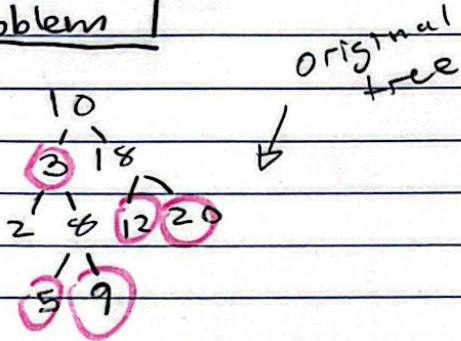 oblem
original
tree
10
3 18
2 8 12 20
5 9